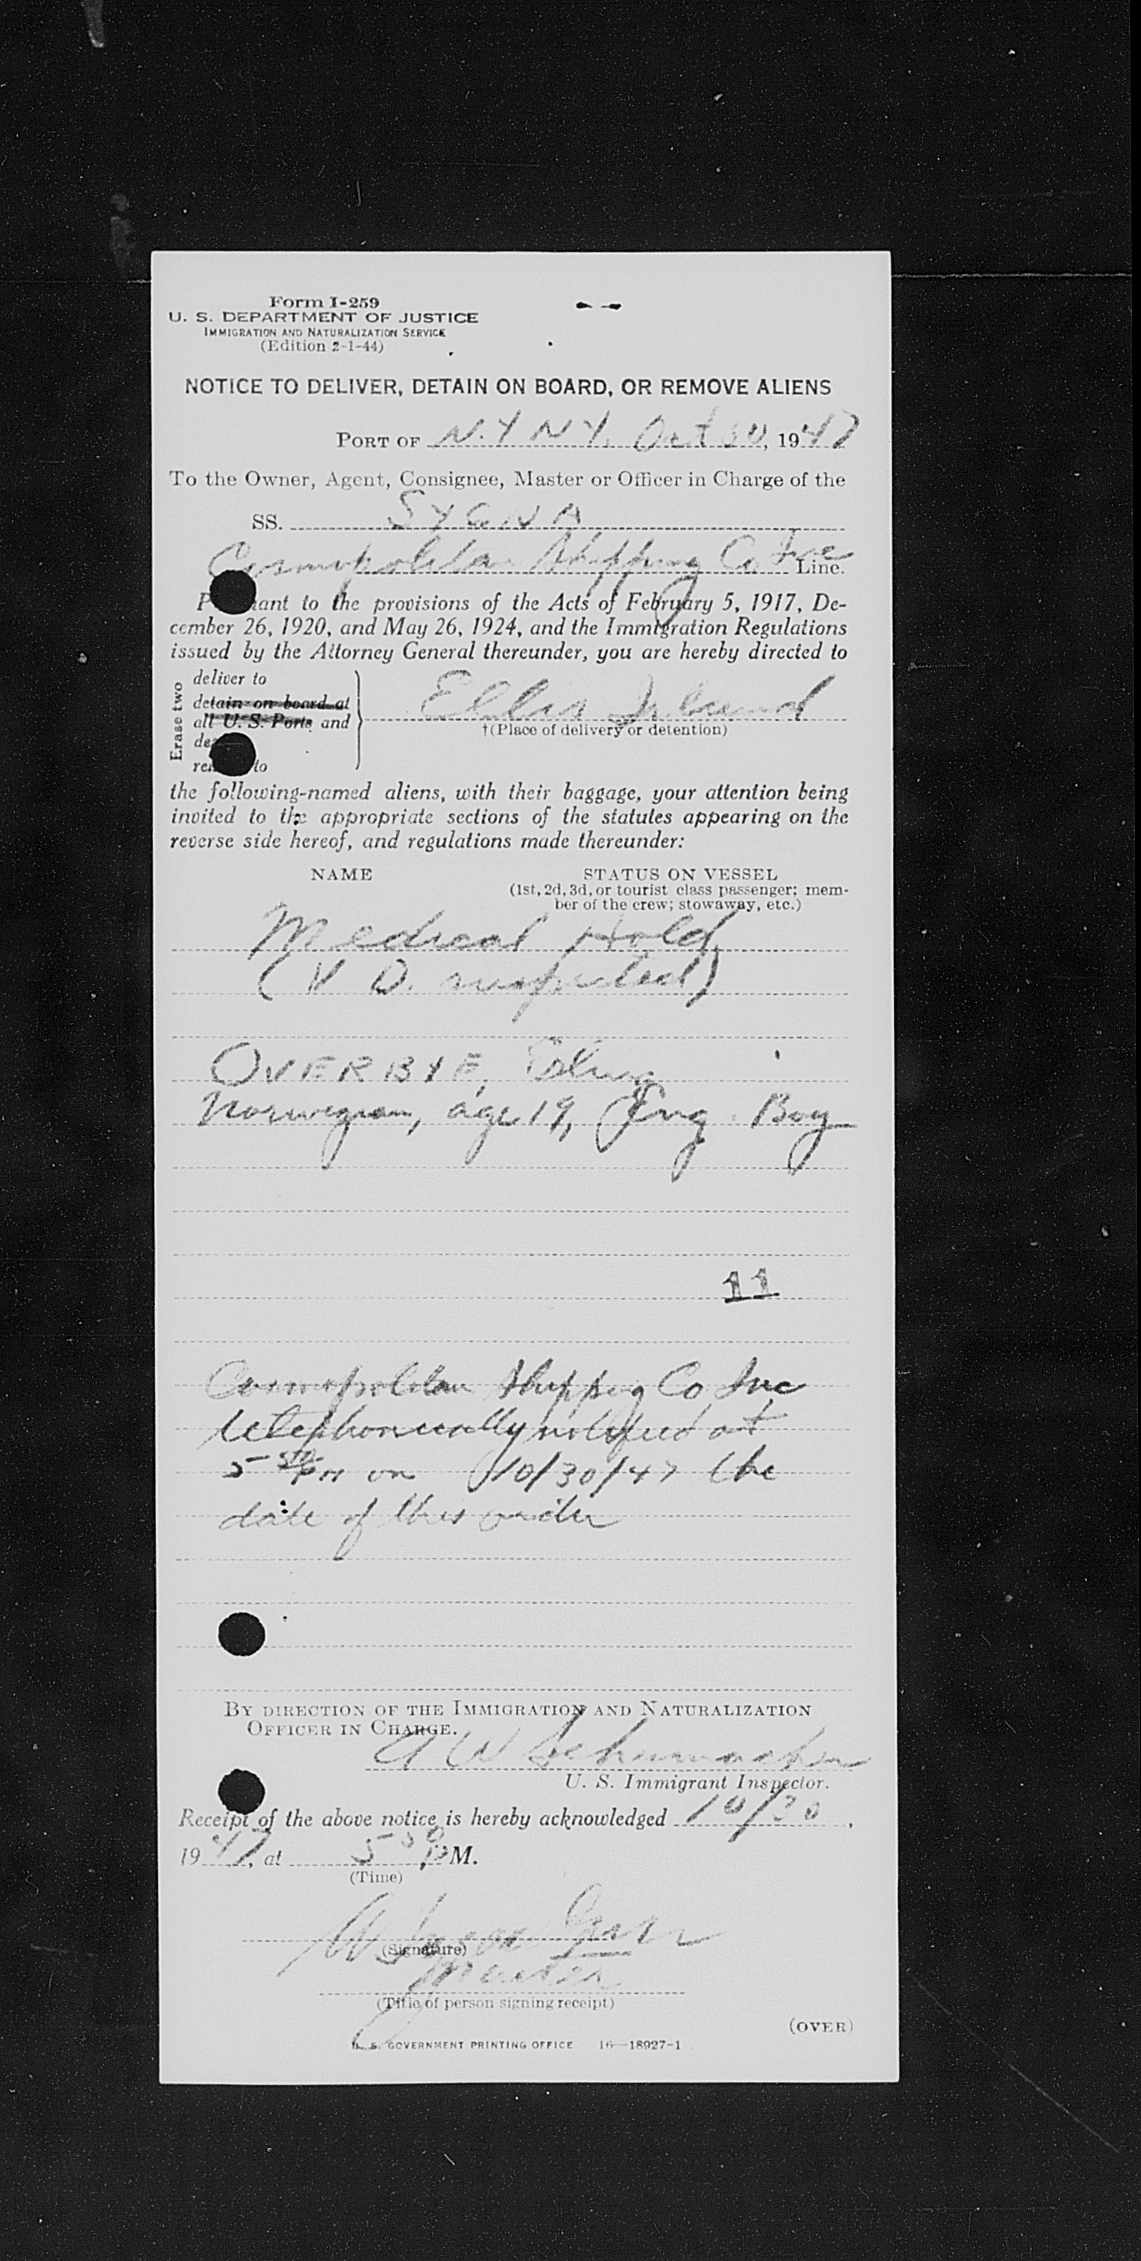 Form I-259
U. S. DEPARTMENT OF JUSTICE
IMMIGRATION AND NATURALIZATION SERVICE
(Edition 2-1-44)
NOTICE TO DELIVER, DETAIN ON BOARD, OR REMOVE ALIENS
PORT OF N. Y N Y. Oct 30, 1947
To the Owner, Agent, Consignee, Master or Officer in Charge of the
SS. SYGNA
Cosmopolitan Shipping Co Inc Line.
P ant to the provisions of the Acts of February 5, 1917, De-
cember 26, 1920, and May 26, 1924, and the Immigration Regulations
issued by the Attorney General thereunder, you are hereby directed to
Erase two
deliver to
detain on board at
all U. S. Ports and
de
re to
Ellis Island
†(Place of delivery or detention)
the following-named aliens, with their baggage, your attention being
invited to the appropriate sections of the statutes appearing on the
reverse side hereof, and regulations made thereunder:
NAME STATUS ON VESSEL
(1st, 2d, 3d, or tourist class passenger; mem-
ber of the crew; stowaway, etc.)
Medical Hold
(V D. suspected)
OVERBYE,
Norwegian, age 19, Eng. Boy
11
Cosmopolitan Shipping Co Inc
telephonically notified at
5 50 PM on 10/30/47 the
date of this order
BY DIRECTION OF THE IMMIGRATION AND NATURALIZATION
OFFICER IN CHARGE.
A W Schumacher
U. S. Immigrant Inspector.
Receipt of the above notice is hereby acknowledged 10/30,
1947, at 5 50 P M.
(Time)
(Signature)
Master
(Title of person signing receipt)
(OVER)
U. S. GOVERNMENT PRINTING OFFICE 16—18927-1